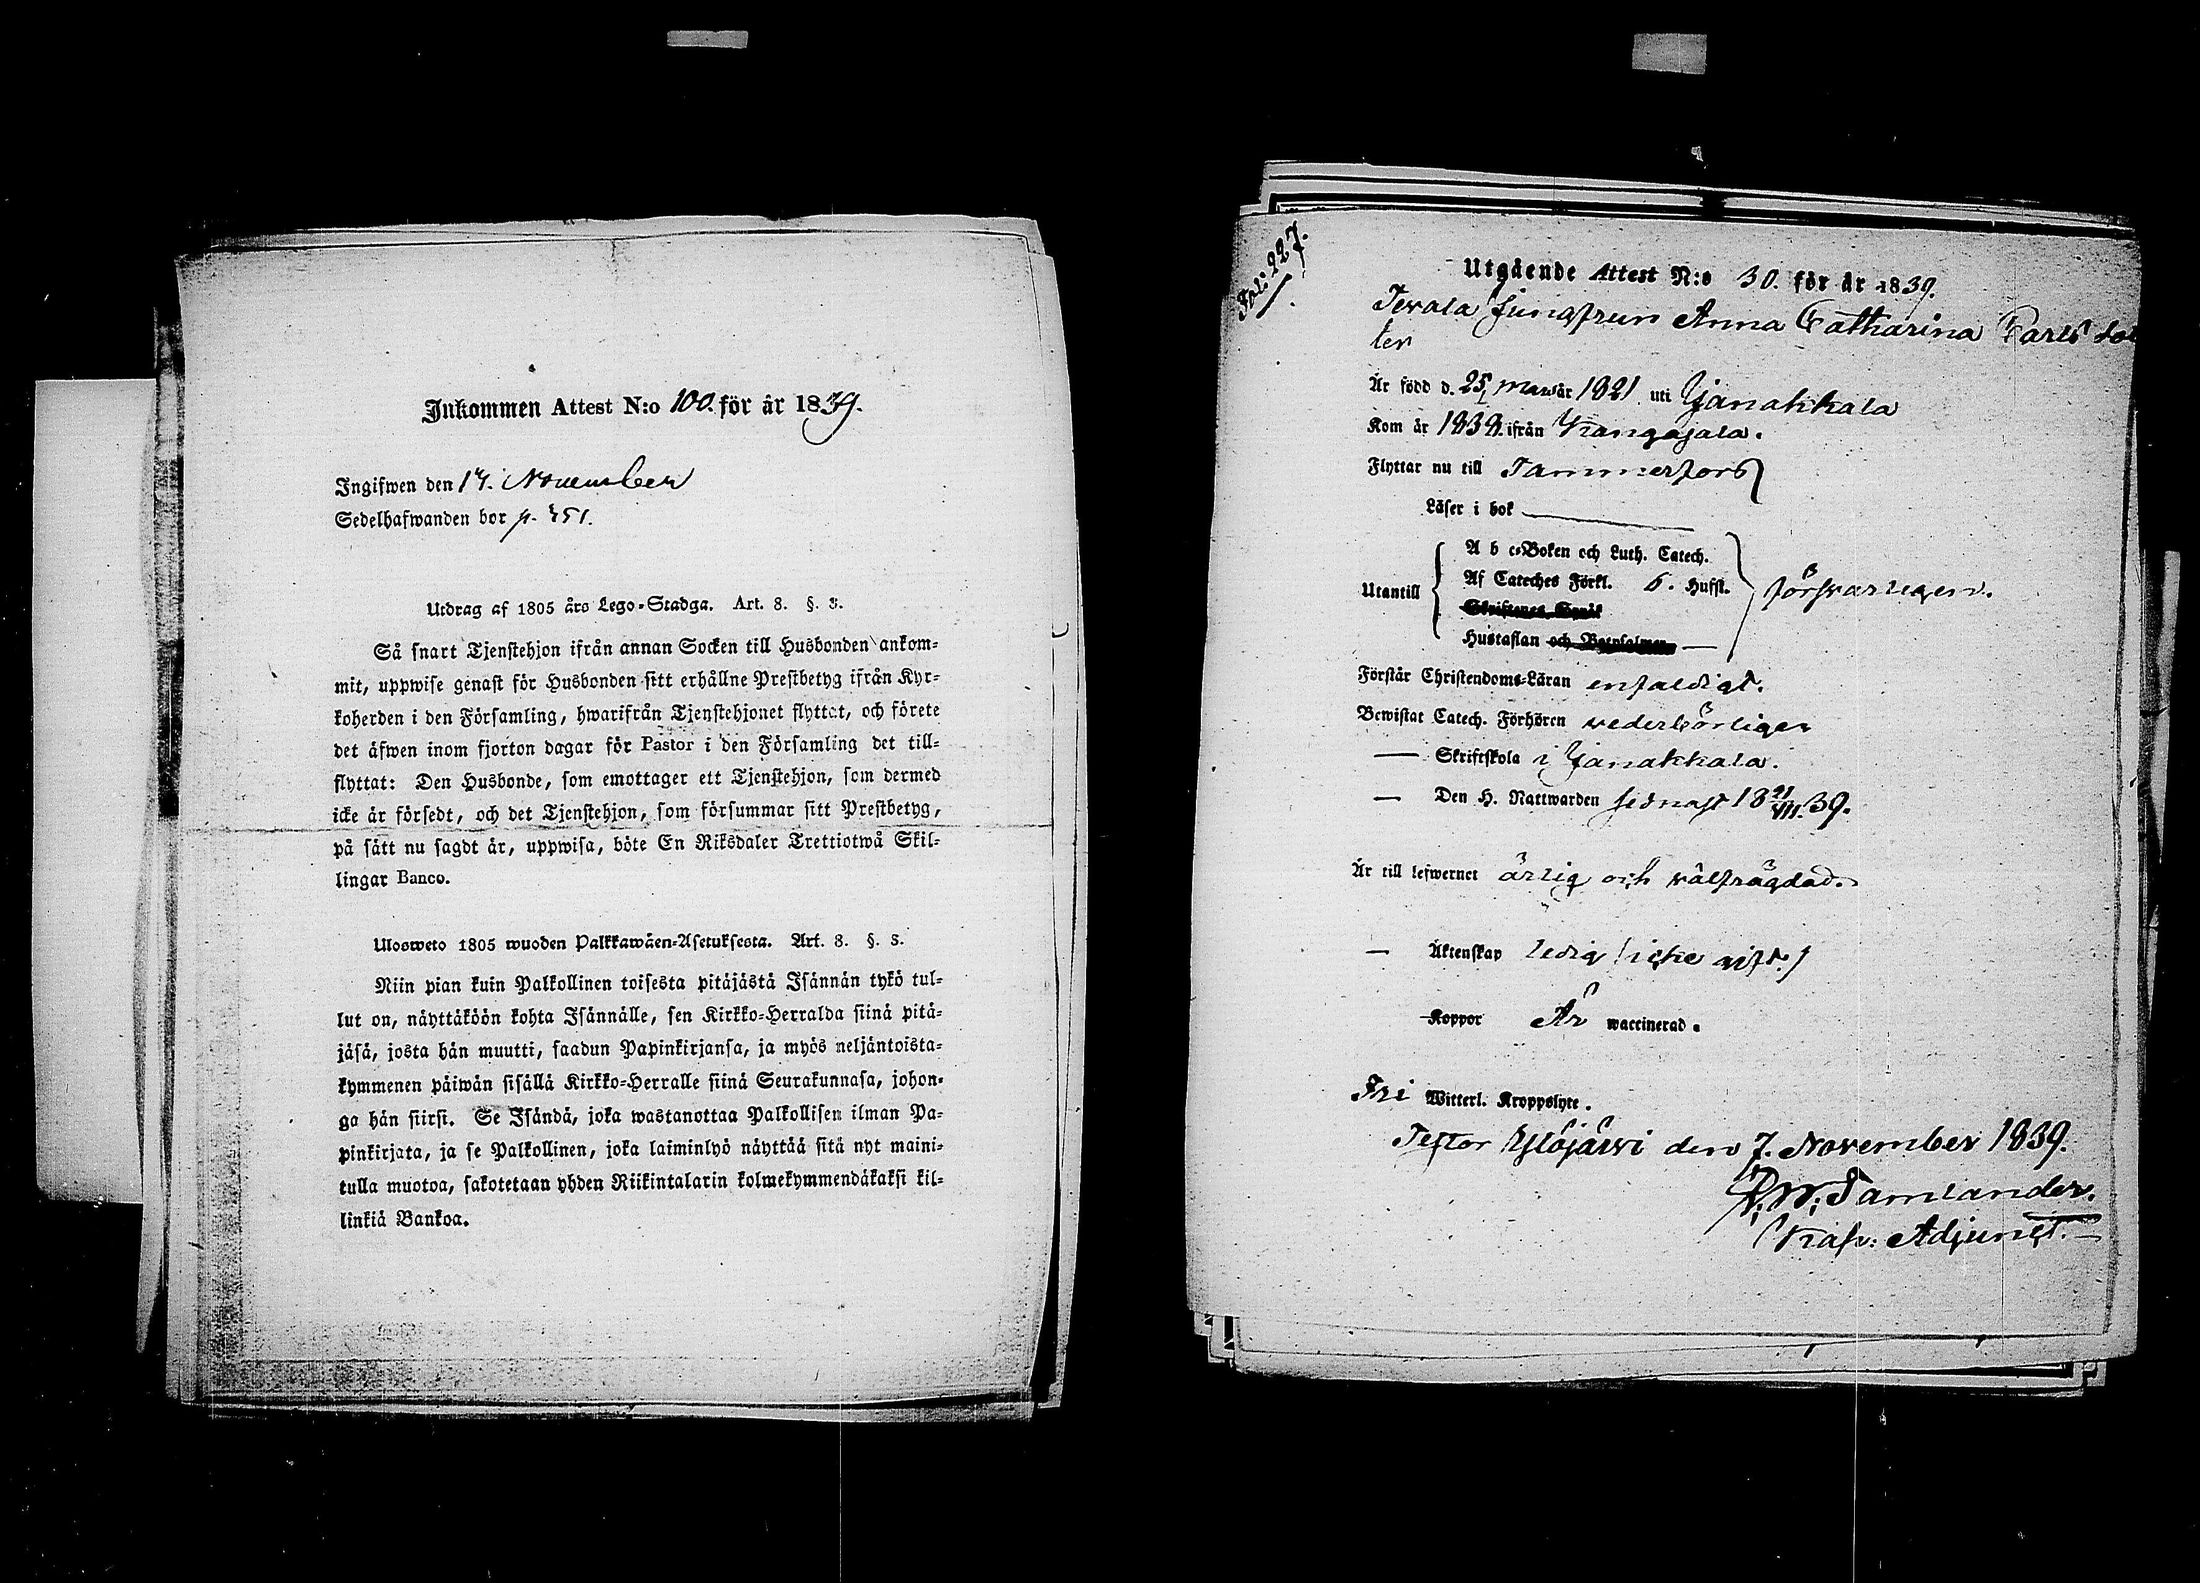 Inkommen Attest N:o 100. för år 1839.
Ingifwen den 14. November
Sedelhafwanden bor p. 351.
Utdrag af 1805 års Lego-Stadga. Art. 8. §. 3.
Så snart Tjenstehjon ifrån annan Socken till Husbonden ankom-
mit, uppwise genast för Husbonden sitt erhållne Prestbetyg ifrån Kyr-
koherden i den Församling, hwarifrån Tjenstehjonet flyttat, och förete
det äfwen inom fjorton dagar för Pastor i den Församling det till-
flyttat: Den Husbonde, som emottager ett Tjenstehjon, som dermed
icke är försedt, och det Tjenstehjon, som försummar sitt Prestbetyg,
på sätt nu sagdt är, uppwisa, böte En Riksdaler Trettiotwå Skil-
lingar Banco.
Ulosweto 1805 wuoden Palkkawäen-Asetuksesta. Art. 8. §. 3.
Niin pian kuin Palkollinen toisesta pitäjästä Isännän tykö tul-
lut on, näyttäköön kohta Isännälle, sen Kirkko-Herralda siinä pitä-
jäsä, josta hän muutti, saadun Papinkirjansa, ja myös neljäntoista-
kymmenen päiwän sisällä Kirkko-Herralle siinä Seurakunnasa, johon-
ga hän siirsi. Se Isändä, joka wastanottaa Palkollisen ilman Pa-
pinkirjata, ja se Palkollinen, joka laiminlyö näyttää sitä nyt maini-
tulla muotoa, sakotetaan yhden Riikintalarin kolmekymmendäkaksi kil-
linkiä Bankoa.
Fol: 227.
Utgående Attest N:o 30. för år 1839.
Jungfrun Anna Catharina Carls dot
ter
Är född d. 25 Mars år 1821 uti Janakkala
Kom år 1838 ifrån Kangasala.
Flyttar nu till Tammerfors
Läser i bok
A b c-Boken och Luth. Catech.
Af Cateches Förkl. 6. Hufst.
Utantill
försvarligen.
Skriftenes Språk
Hustaflan och Botpsalmen
Förstår Christendoms-Läran enfaldigt.
Bewistat Catech. Förhören vederbörligen
Skriftskola i Janakkala.
Den H. Nattwarden sednast 18 21/VII. 39.
Är till lefwernet ärlig och välfrägdad.
Äktenskap ledig (icke gift.)
Koppor Är waccinerad.
Fri Witterl. Kroppslyte.
Testor Ylöjärvi den 7. November 1839.
Tamlander.
Kap: Adjunct.